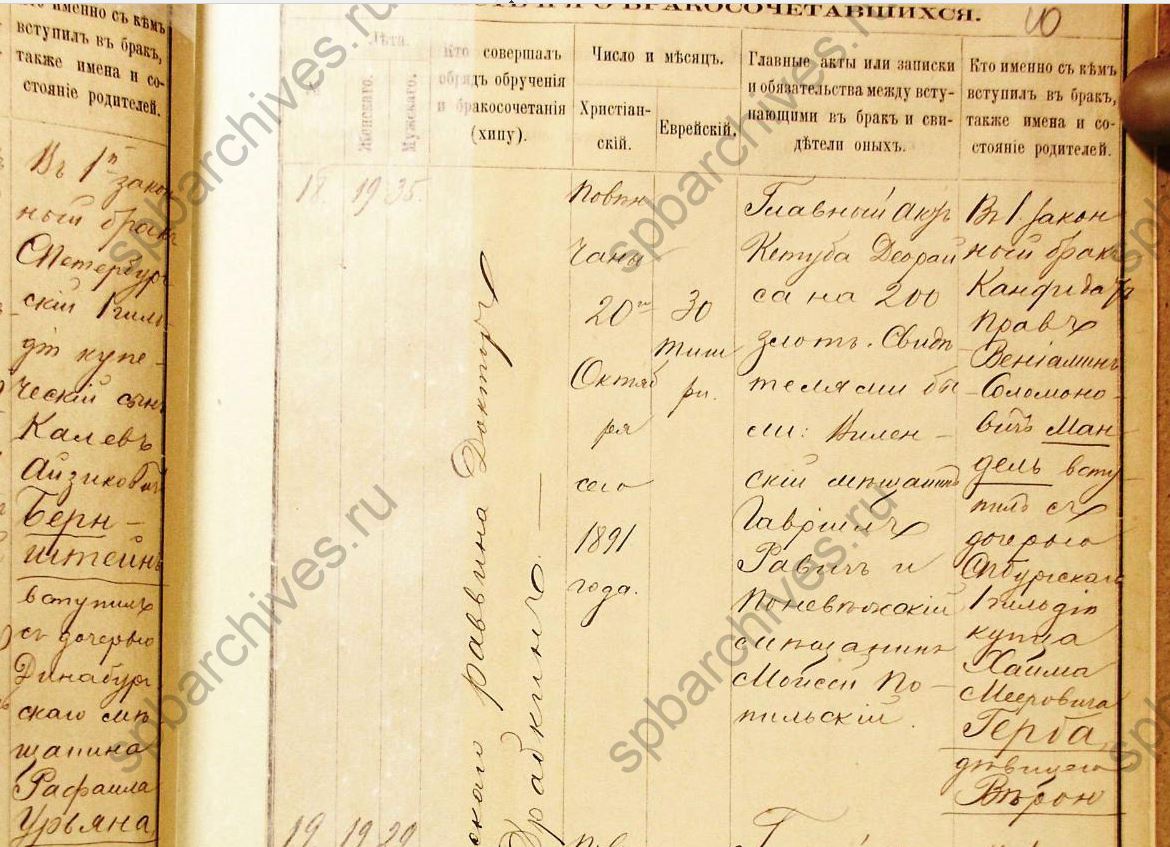 о именно съ кѣмъ
вступилъ въ бракъ,
также имена и со-
стояніе родителей.
Въ 1й закон
ный бракъ
СПетербург
скій 1 гиль
діи купе-
ческій сынъ
Калевъ
Айзиковичъ
Берн-
штейнъ
вступилъ
съ дочерью
Динабург
скаго мѣ
щанина
Рафаила
Урьяна,
О БРАКОСОЧЕТАВШИХСЯ.
Лѣта.
Женскаго.
Мужскаго.
Кто совершалъ
обрядъ обрученія
и бракосочетанія
(хипу).
Число и мѣсяцъ.
Христіан-
скій.
Еврейскій.
Главные акты или записки
и обязательства между всту-
пающими въ бракъ и сви-
дѣтели оныхъ.
Кто именно съ кѣмъ
вступилъ въ бракъ,
также имена и со-
стояніе родителей.
18 19 35.
скаго раввина Докторъ
Драбкинъ. —
20го
Октяб
ря
сего
1891
года.
30
тиш
ри.
Главный актъ
Кетуба Деорай
са на 200
злотъ. Свидѣ
телями бы
ли: Вилен-
скій мѣщанинъ
Гавріилъ
Равичъ и
Поневѣжскій
мѣщанинъ
Мойсей По-
пильскій.
Въ 1 закон
ный бракъ
Кандидатъ
правъ
Веніаминъ
Соломоно-
вичъ Ман-
дель всту
пилъ съ
дочерью
СПбургскаго
1 гильдіи
купца
Хаима
Мееровича
Герба,
дѣвицею
Вѣрою
19 19 29